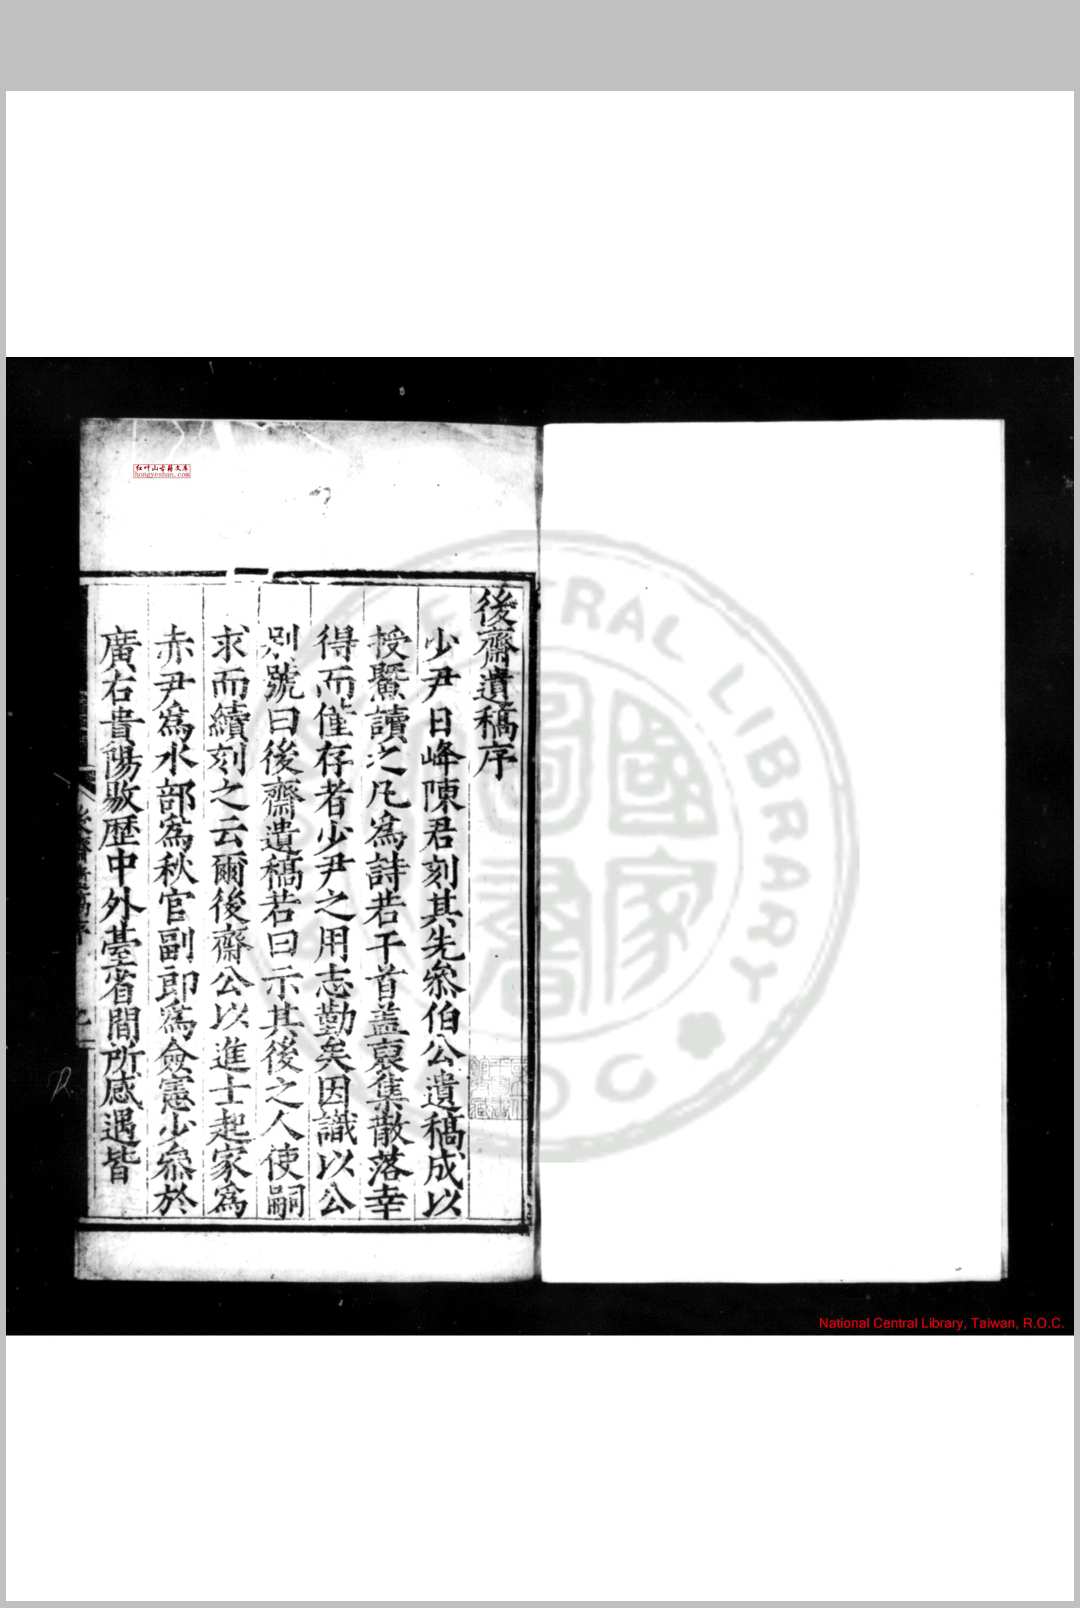 红叶山古籍文库
hongyeshan.com
後齋遺稿序
少尹日峰陳君刻其先叅伯公遺稿成以
授鼇讀之凡爲詩若干首蓋裒集散落幸
得而僅存者少尹之用志勤矣因識以公
别號曰後齋遺稿若曰示其後之人使嗣
求而續刻之云爾後齋公以進士起家爲
赤尹爲水部爲秋官副郎爲僉憲少叅於
廣右貴陽敭歴中外臺省間所感遇皆
CENTRAL LIBRARY
國家
R.O.C.
National Central Library, Taiwan, R.O.C.